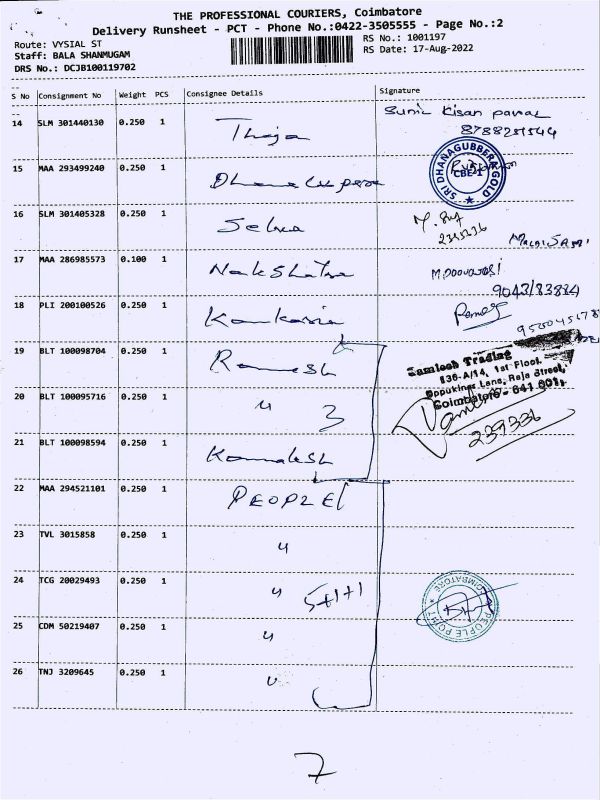 THE PROFESSIONAL COURIERS, Coimbatore
Delivery Runsheet - PCT - Phone No.:0422-3505555 - Page No.:2
Route: VYSIAL ST
RS No.: 1001197
Staff: BALA SHANMUGAM
RS Date: 17-Aug-2022
DRS No.: DCJB100119702
S No Consignment No Weight PCS Consignee Details Signature
14 SLM 301440130 0.250 1 Theja Sunil Kisan pawar
8788251544
15 MAA 293499240 0.250 1
SRI DHANAGUBBERA GOLD
CBE-1
16 SLM 301405328 0.250 1 Selva
17 MAA 286985573 0.100 1 Nakshatra
18 PLI 200100526 0.250 1
19 BLT 100098704 0.250 1 Ramesh
Kamlesh Trading
136-A/14, 1st Floor,
Oppukinar Lane, Raja Street,
Coimbatore - 641 001.
20 BLT 100095716 0.250 1 " 3
239336
21 BLT 100098594 0.250 1 Kamalesh
22 MAA 294521101 0.250 1 PEOPLE
23 TVL 3015858 0.250 1 "
24 TCG 20029493 0.250 1 " 5+1+1
PEOPLE POINT
COIMBATORE
25 CDM 50219407 0.250 1 "
26 TNJ 3209645 0.250 1 "
7